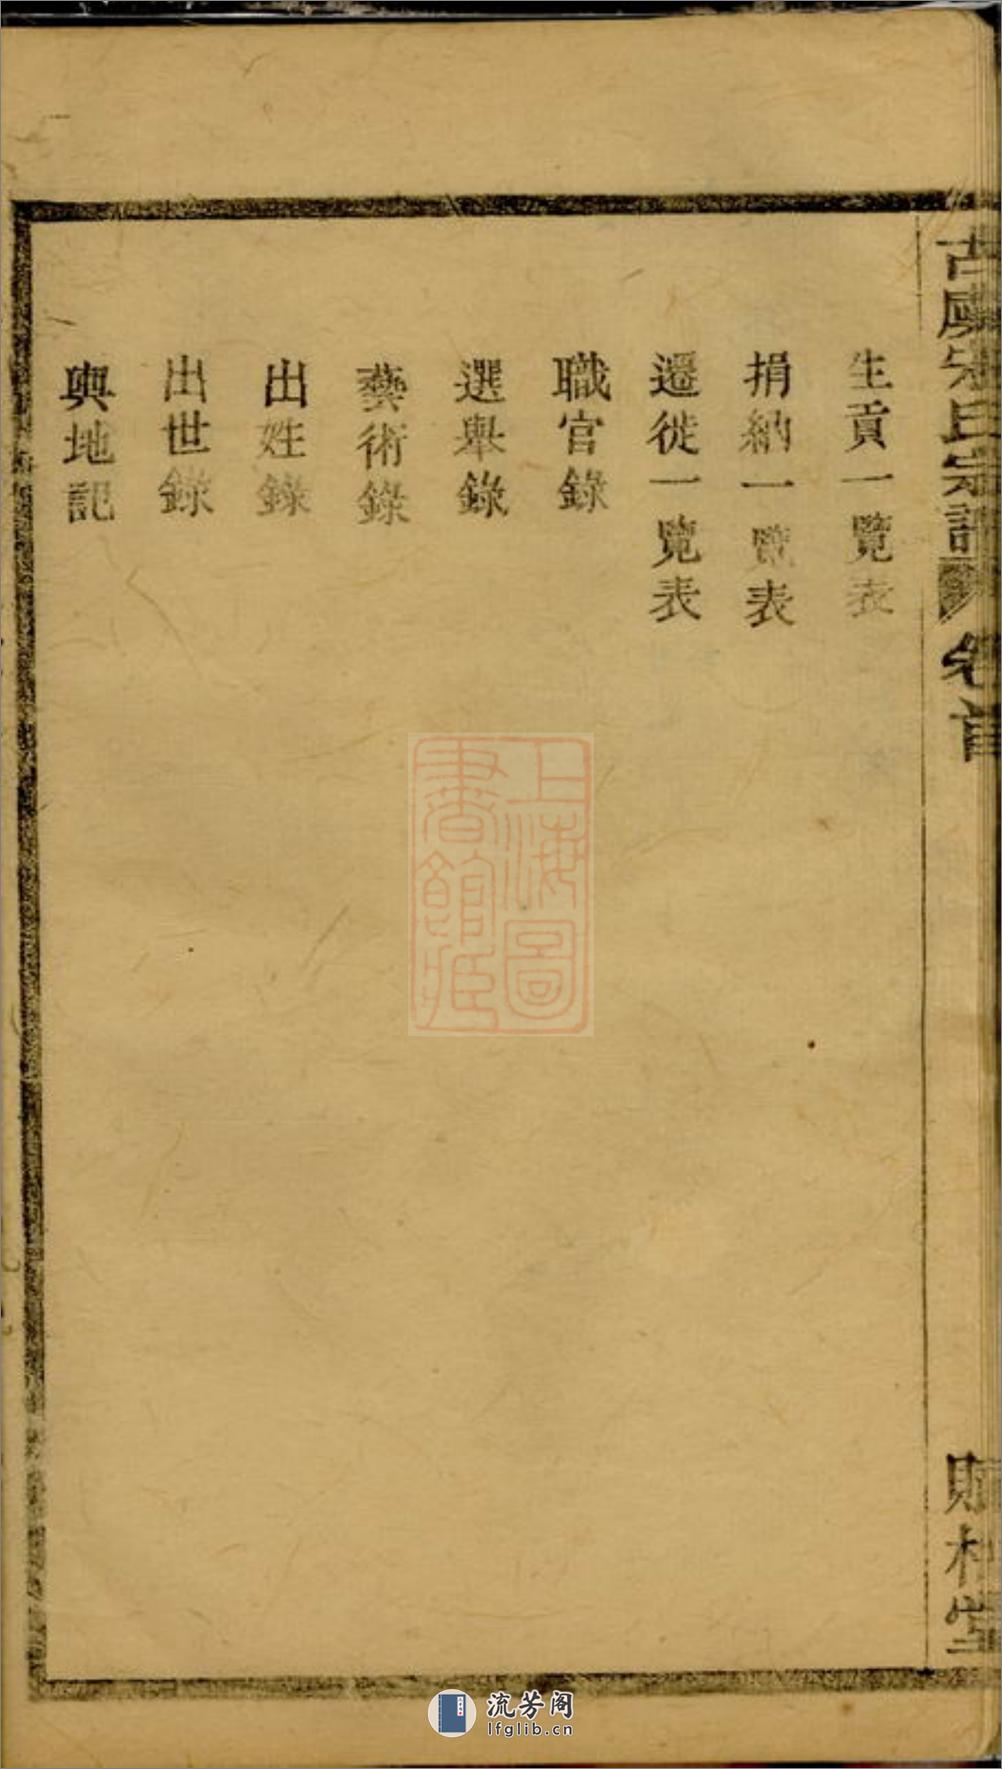 古虞宋氏宗譜 卷首
生貢一覽表
捐納一覽表
遷徙一覽表
職官錄
選舉錄
藝術錄
出姓錄
出世錄
輿地記
上海圖
書館藏
流芳阁
lfglib.cn